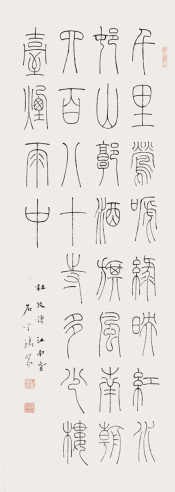 千里鶯啼綠映紅水
邨山郭酒旗風南朝
四百八十寺多少樓
臺煙雨中
杜牧詩江南春